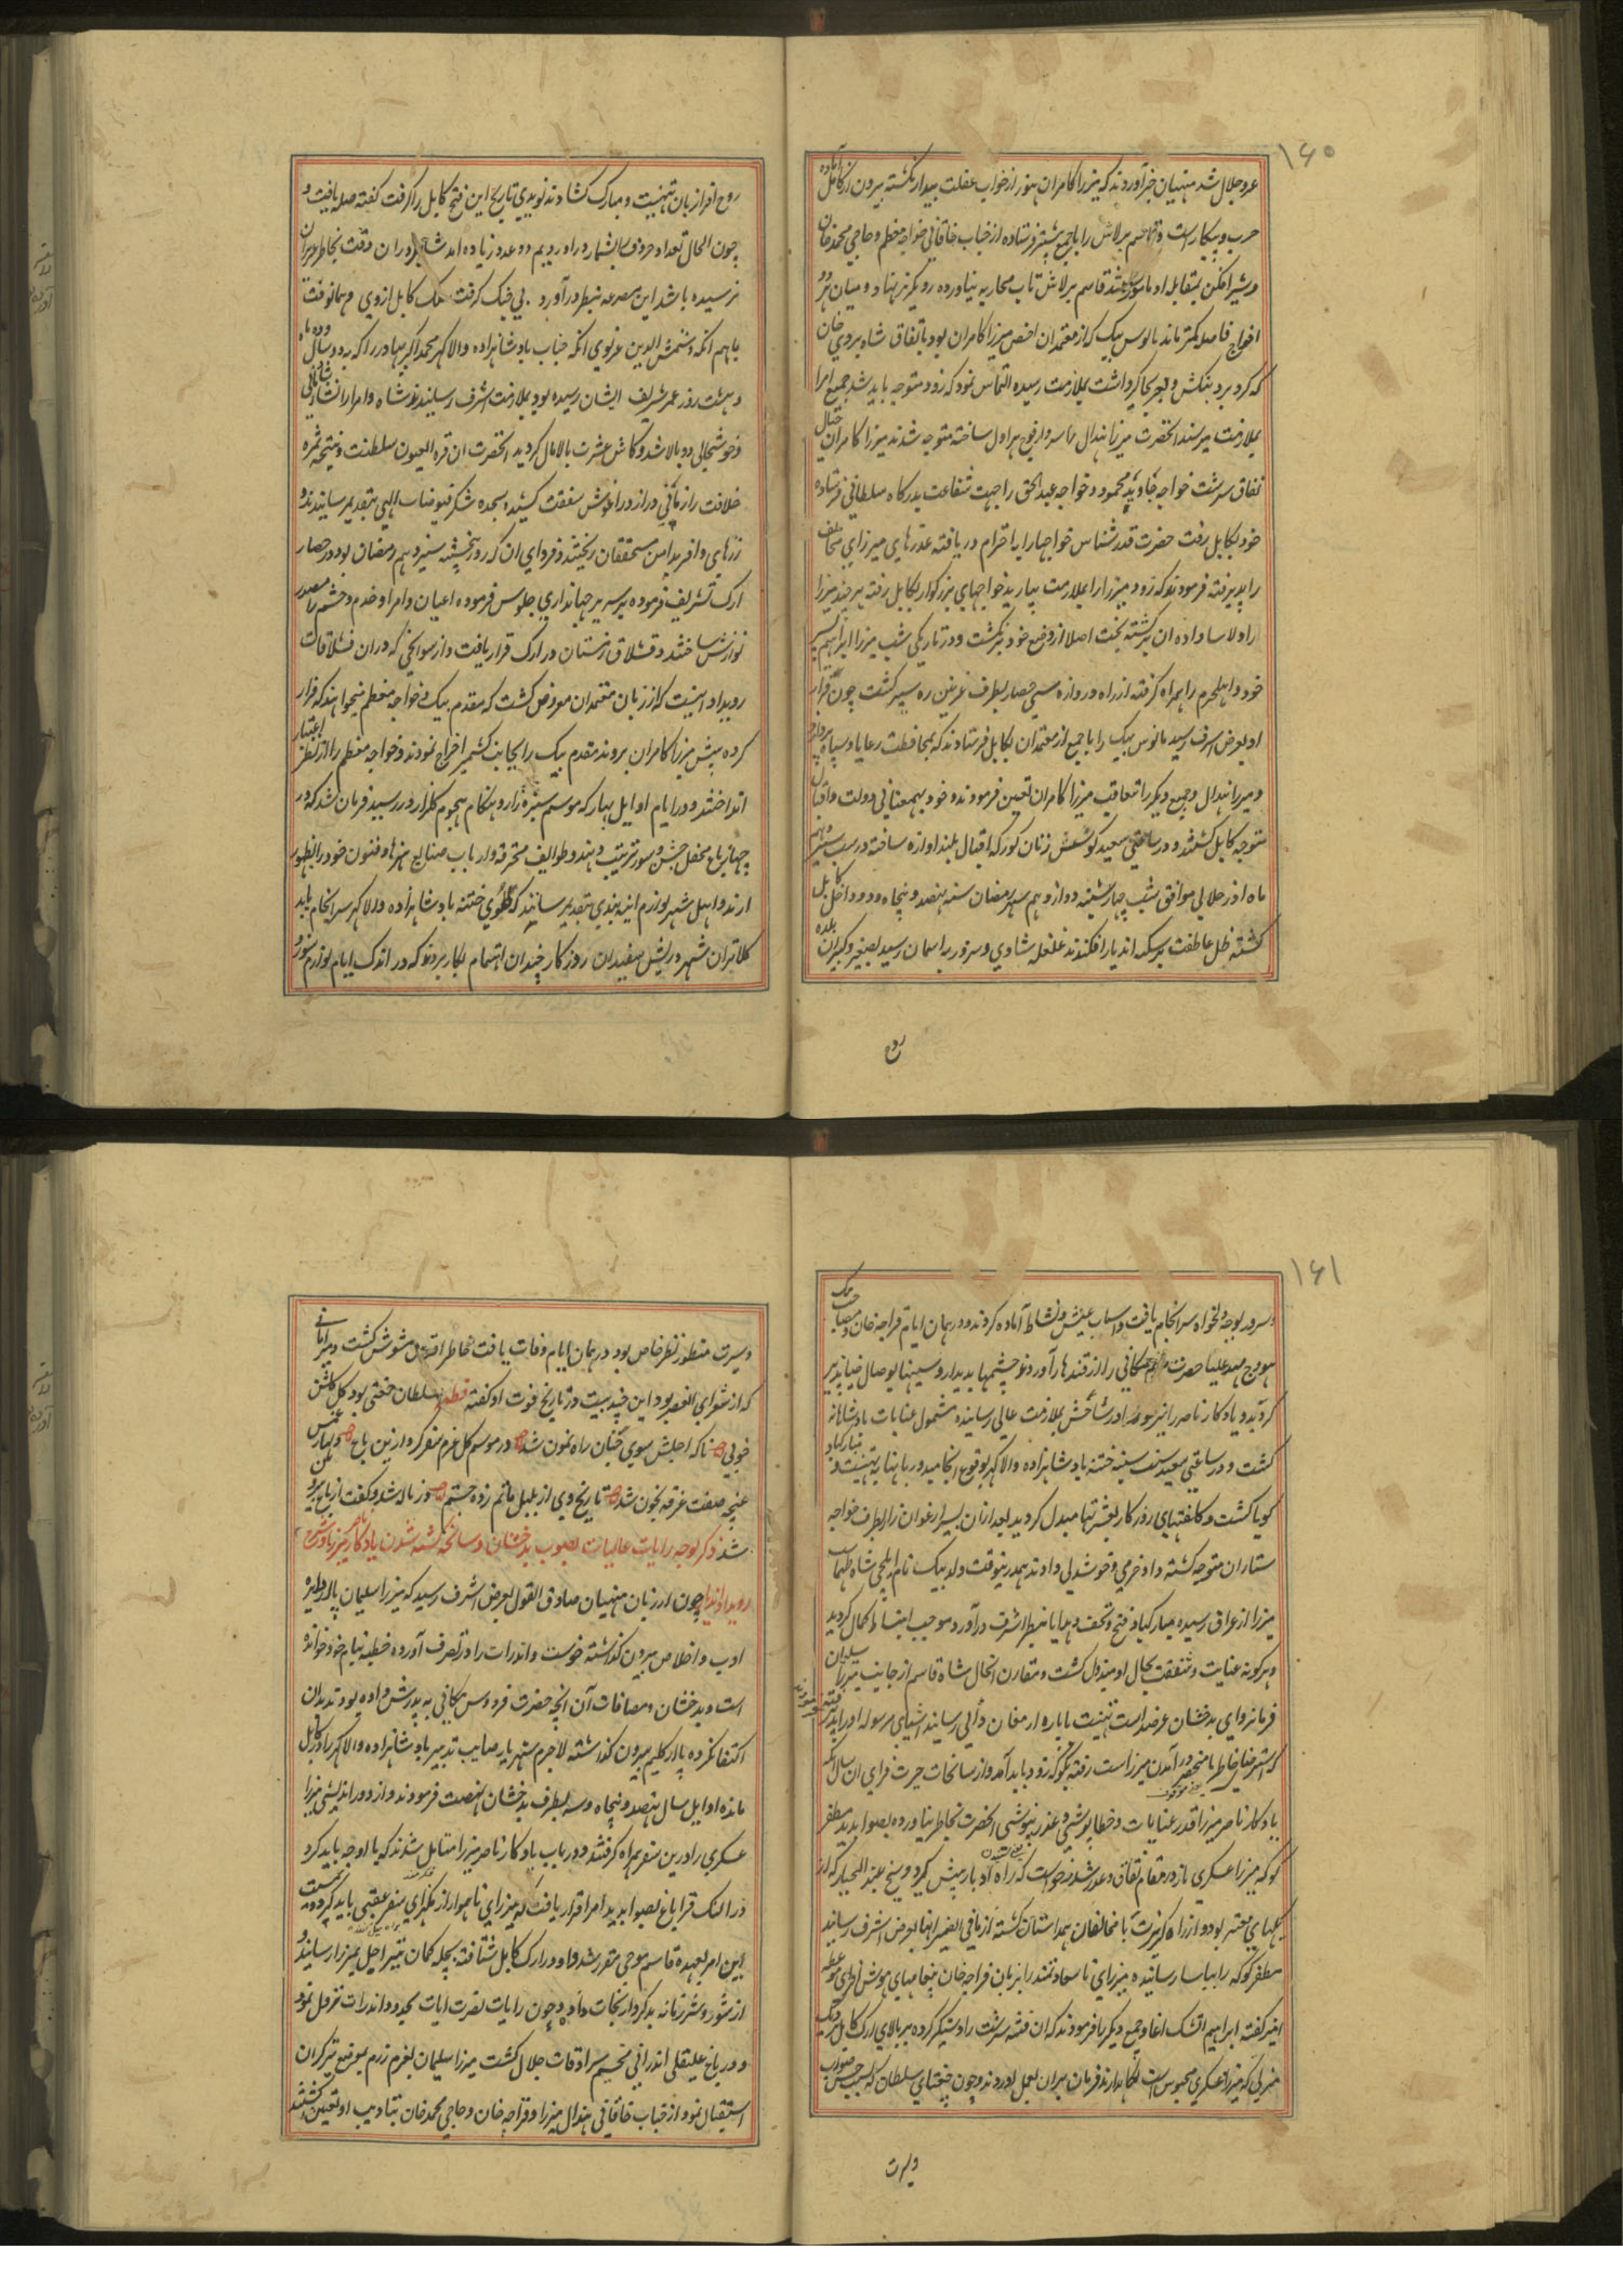 ۱۶۰
عز و جلال شد منهیان خبر آوردند که میرزا کامران هنوز از خواب غفلت بیدار نکشته بیرون از کابل آماده
حرب و پیکار است و قاسم برلاس را با جمعی پیشتر فرستاده از جناب خاقانی خواجه معظم و حاجی محمد خان
و شیر افکن بمقابله او مامور کشتند قاسم برلاس تاب محاربه نیاورده رو بکریز نهاد و میان هر دو
افواج فاصله کمتر ماند بالوس بیک که از معتمدان اخص میرزا کامران بود باتفاق شاه بردی خان
که کردیز و بنکش و نغر بجاکیر داشت بملازمت رسیده التماس نمود که زود متوجه باید شد جمیع امرا
بملازمت میرسند انحضرت میرزا هندال را سردار فوج هراول ساخته متوجه شدند میرزا کامران
نفاق سرشت خواجه خاوند محمود و خواجه عبد الحق را جهت شفاعت بدرکاه سلطانی فرستاده
خود بکابل رفت حضرت قدر شناس خواجها را با احترام دریافته عذرهای میرزای مخالف
را پذیرفته فرمودند که زود میرزا را بملازمت بیارید خواجهای بزرکوار بکابل رفته هر چند میرزا
را دلاسا داده ان برکشته بخت اصلا از وضع خود برنکشت و در تاریکی شب میرزا ابراهیم پسر
خود و اهل حرم را همراه کرفته از راه دروازه حصار بطرف غزنین ره سپر کشت چون فرار
او بعرض اشرف رسید بابوس بیک را با جمعی از معتمدان بکابل فرستادند که بمحافظت رعایا و سپاه
و میرزا هندال و جمعی دیکر را بتعاقب میرزا کامران تعین فرمودند و خود بهمعنانی دولت و اقبال
متوجه کابل کشتند و در ساعتی سعید کوشش زنان کورکه اقبال بلند اوازه ساخته در شب
ماه اذر جلالی موافق شب چهارشنبه دوازدهم شهر رمضان سنه نهصد و پنجاه و دو داخل کابل
کشته ظل عاطفت بر سکنه ان دیار افکندند غلغله شادی و سرور به اسمان رسید صغیر و کبیر ان بلده
روح
روح افزا زبان تهنیت و مبارک کشادند نویدی تاریخ این فتح کابل را کرفت کفته صله یافت و
چون الحال تعداد حروف بشمار در اوردیم دو عدد زیاده امد شاید در ان وقت بخاطر
نرسیده باشد این مصرعه بنظر در آورد بی جنک کرفت ملک کابل از وی و همانوقت
ماهم انکه و شمس الدین غزنوی انکه جناب بادشاهزاده والا کهر محمد اکبر بهادر را که بدو سال و دو ماه
و هشت روز عمر شریف ایشان رسیده بود بملازمت اشرف رسانیدند شاه و امرا را نشاط
و خوشحالی دوبالا شد و کاش عشرت بالامال کردید انحضرت ان قرة العیون سلطنت و نتیجه ثمره
خلافت را زمانی دراز در اغوش شفقت کشیده سجده شکر فیوضات الهی بتقدیم رسانیدند و
زرهای وافر بدامن مستحقان ریختند و فردای ان که روز پنجشنبه سیزدهم رمضان بود در حصار
ارک تشریف فرموده بر سریر جهانداری جلوس فرموده اعیان و امرا و خدم و حشم را مصدر
نوازش ساختند و قشلاق زمستان در ارک قرار یافت و از سوانحی که در ان قشلاقات
رویداد اینست که از زبان معتمدان معروض کشت که مقدم بیک و خواجه معظم میخواهند که فرار
کرده پیش میرزا کامران بروند مقدم بیک را بجانب کشمیر اخراج نمودند و خواجه معظم را از نظر اعتبار
انداختند و در ایام اوایل بهار که موسم سبزه زار و هنکام هجوم کلزار در رسید فرمان شد که در
چهار باغ محفل جشن و سور ترتیب دهند و طوایف محترفه و ارباب صنایع هنرها و فنون خود را بظهور
ارند و اهل شهر لوازم ائینه بندی بتقدیم رسانند که طوی ختنه بادشاهزاده والا کهر سرانجام یابد
کلانتران شهر و ریش سفیدان روزکار چندان اهتمام بکار بردند که در اندک ایام لوازم سور
۱۶۱
و سرور بوجه دلخواه سرانجام یافت و اسباب عیش و نشاط آماده کردند و در همان ایام قراجه خان و مصاحب بیک
هودج مهد علیا حضرت مریم مکانی را از قندهار آوردند چشمها بدیدار و سینها بوصال ضیا پذیر
کردید و یادکار ناصر میرزا نیز بملازمت عالی رسانیده مشمول عنایات بادشاهانه
کشت و در ساعتی سعید سنت سنیه ختنه بادشاهزاده والا کهر بوقوع انجامید و زبانها به تهنیت و مبارکباد
کویا کشت و کلفتهای روزکار بعشرتها مبدل کردید بعد ازان بسیر ارغوان زار بطرف خواجه
ستاران متوجه کشته داد خرمی و خوشدلی دادند همدرینوقت ولد بیک نام ایلچی شاه طهماسب
میرزا از عراق رسیده مبارکباد فتح و تحف و هدایا بنظر اشرف درآورد موجب انبساط کمال کردید
و هر کونه عنایت و شفقت بحال او مبذول کشت و مقارن انحال شاه قاسم از جانب میرزا سلیمان
فرمانروای بدخشان عرضداشت تهنیت با پاره ارمغان و انی رسانید اشیای مرسوله او را پذیرفته
که استرضای خاطر ما منحصر در آمدن میرزا است رفته بکو که زود بیاید آمد و از سانحات حیرت فزای ان سال انکه
یادکار ناصر میرزا قدر عنایات و خطا پوشی و عذر نیوشی انحضرت بخاطر نیاورده بصوابدید مظفر
کوکه میرزا عسکری باز در مقام نفاق و غدر شد و خواست که راه ادبار پیش کیرد و شیخ عبد الجبار که از
با مخالفان همداستان کشته از مافی الضمیر انها بعرض اشرف رسانید
مظفر کوکه را بیاسا رسانیده میرزای ناسعادتمند را بزبان قراجه خان پیغامهای هوش افزای موعظه
امیز کفته ابراهیم ایشک اغا و جمعی دیکر را فرمودند که ان فتنه سرشت را دستکیر کرده بر بالای ارک کابل نزدیک
منزلی که میرزا عسکری محبوس است نکاهدارند فرمان بران بعمل اوردند و چون چغتای سلطان که بحسن صورت
وسیرت
وسیرت منظور نظر خاص بود در همان ایام وفات یافت خاطر اقدس مشوش کشت و میر امانی
که از شعرای العصر بود این چند بیت در تاریخ فوت او کفته قطعه سلطان چغتی بود کل کلشن
خوبی ناکه اجلش سوی جنان راه نمون شد در موسم کل عزم سفر کرد ازین باغ دلها ز غمش
غنچه صفت غرقه بخون شد تاریخ وی از بلبل ماتم زده جستم در ناله شد و کفت کل از باغ برون
شد ذکر توجه رایات عالیات بصوب بدخشان و سانحه کشته شدن یادکار ناصر میرزا و شرح
رویداد انها چون از زبان منهیان صادق القول بعرض اشرف رسید که میرزا سلیمان پا از دایره
ادب و اخلاص بیرون کذاشته خوست و اندراب را در تصرف آورده خطبه بنام خود خوانده
است و بدخشان و مضافات آن انچه حضرت فردوس مکانی به پدرش داده بودند بدان
اکتفا نکرده پا از کلیم بیرون کذاشته لاجرم شهریار صایب تدبیر بادشاهزاده والا کهر را در کابل
مانده اوایل سال نهصد و پنجاه و سه بطرف بدخشان نهضت فرمودند و از دور اندیشی میرزا
عسکری را درین سفر همراه کرفتند و در باب یادکار ناصر میرزا متامل شدند که با او چه باید کرد
در النک قراباغ بصوابدید امرا قرار یافت که میرزای ناهموار از تنکنای سفر عقبی باید کرد
این امر بعهده قاسم موجی مقرر شد و او در ارک کابل شتافته بچله کمان تیر اجل بمیرزا رسانید و
از شور و شر زمانه بدکردار نجات داد و چون رایات نصرت ایات بحدود اندراب نزول نمود
و در باغ علیقلی اندرابی مخیم سرادقات جلال کشت میرزا سلیمان بعزم رزم بموضع تیرکران
استقبال نمود از جناب خاقانی هندال میرزا و قراجه خان و حاجی محمد خان بتادیب او تعین کشتند